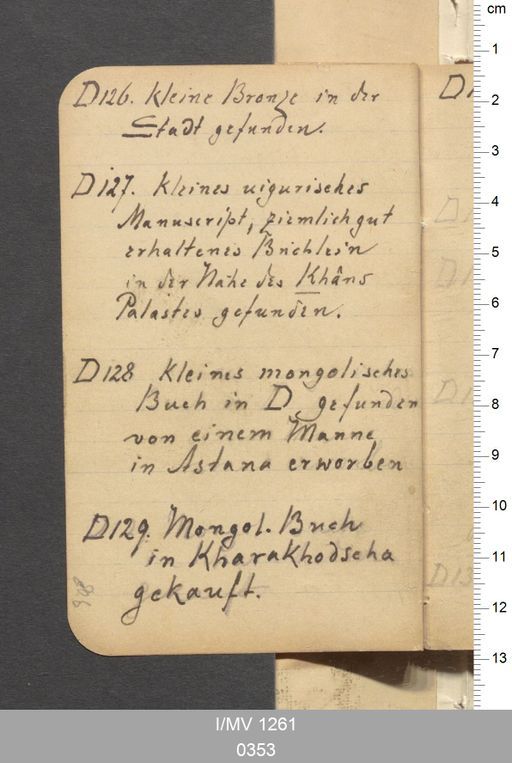 D126. Kleine Bronze in der
Stadt gefunden.
D127. Kleines uigurisches
Manuscript, ziemlich gut
erhaltenes Büchlein
in der Nähe des Khâns
Palastes gefunden.
D128 Kleines mongolisches
Buch in D, gefunden
von einem Manne
in Astana erworben
D129. Mongol. Buch
in Kharakhodscha
gekauft.
cm
1
2
3
4
5
6
7
8
9
10
11
12
13
I/MV 1261
0353